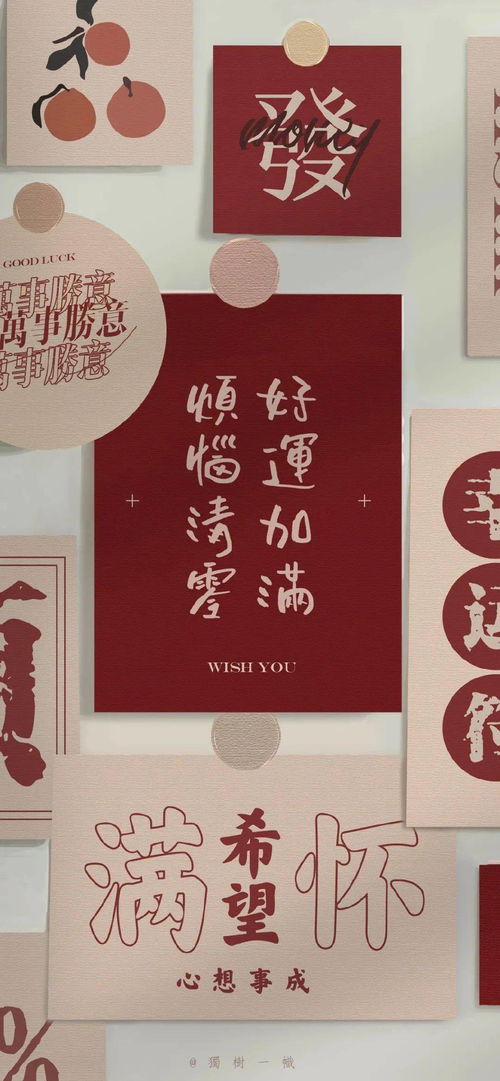 發
money
GOOD LUCK
萬事勝意
萬事勝意
萬事勝意
好運加滿
煩惱清零
WISH YOU
幸
运
满 希望 怀
心想事成
%
@獨樹一幟